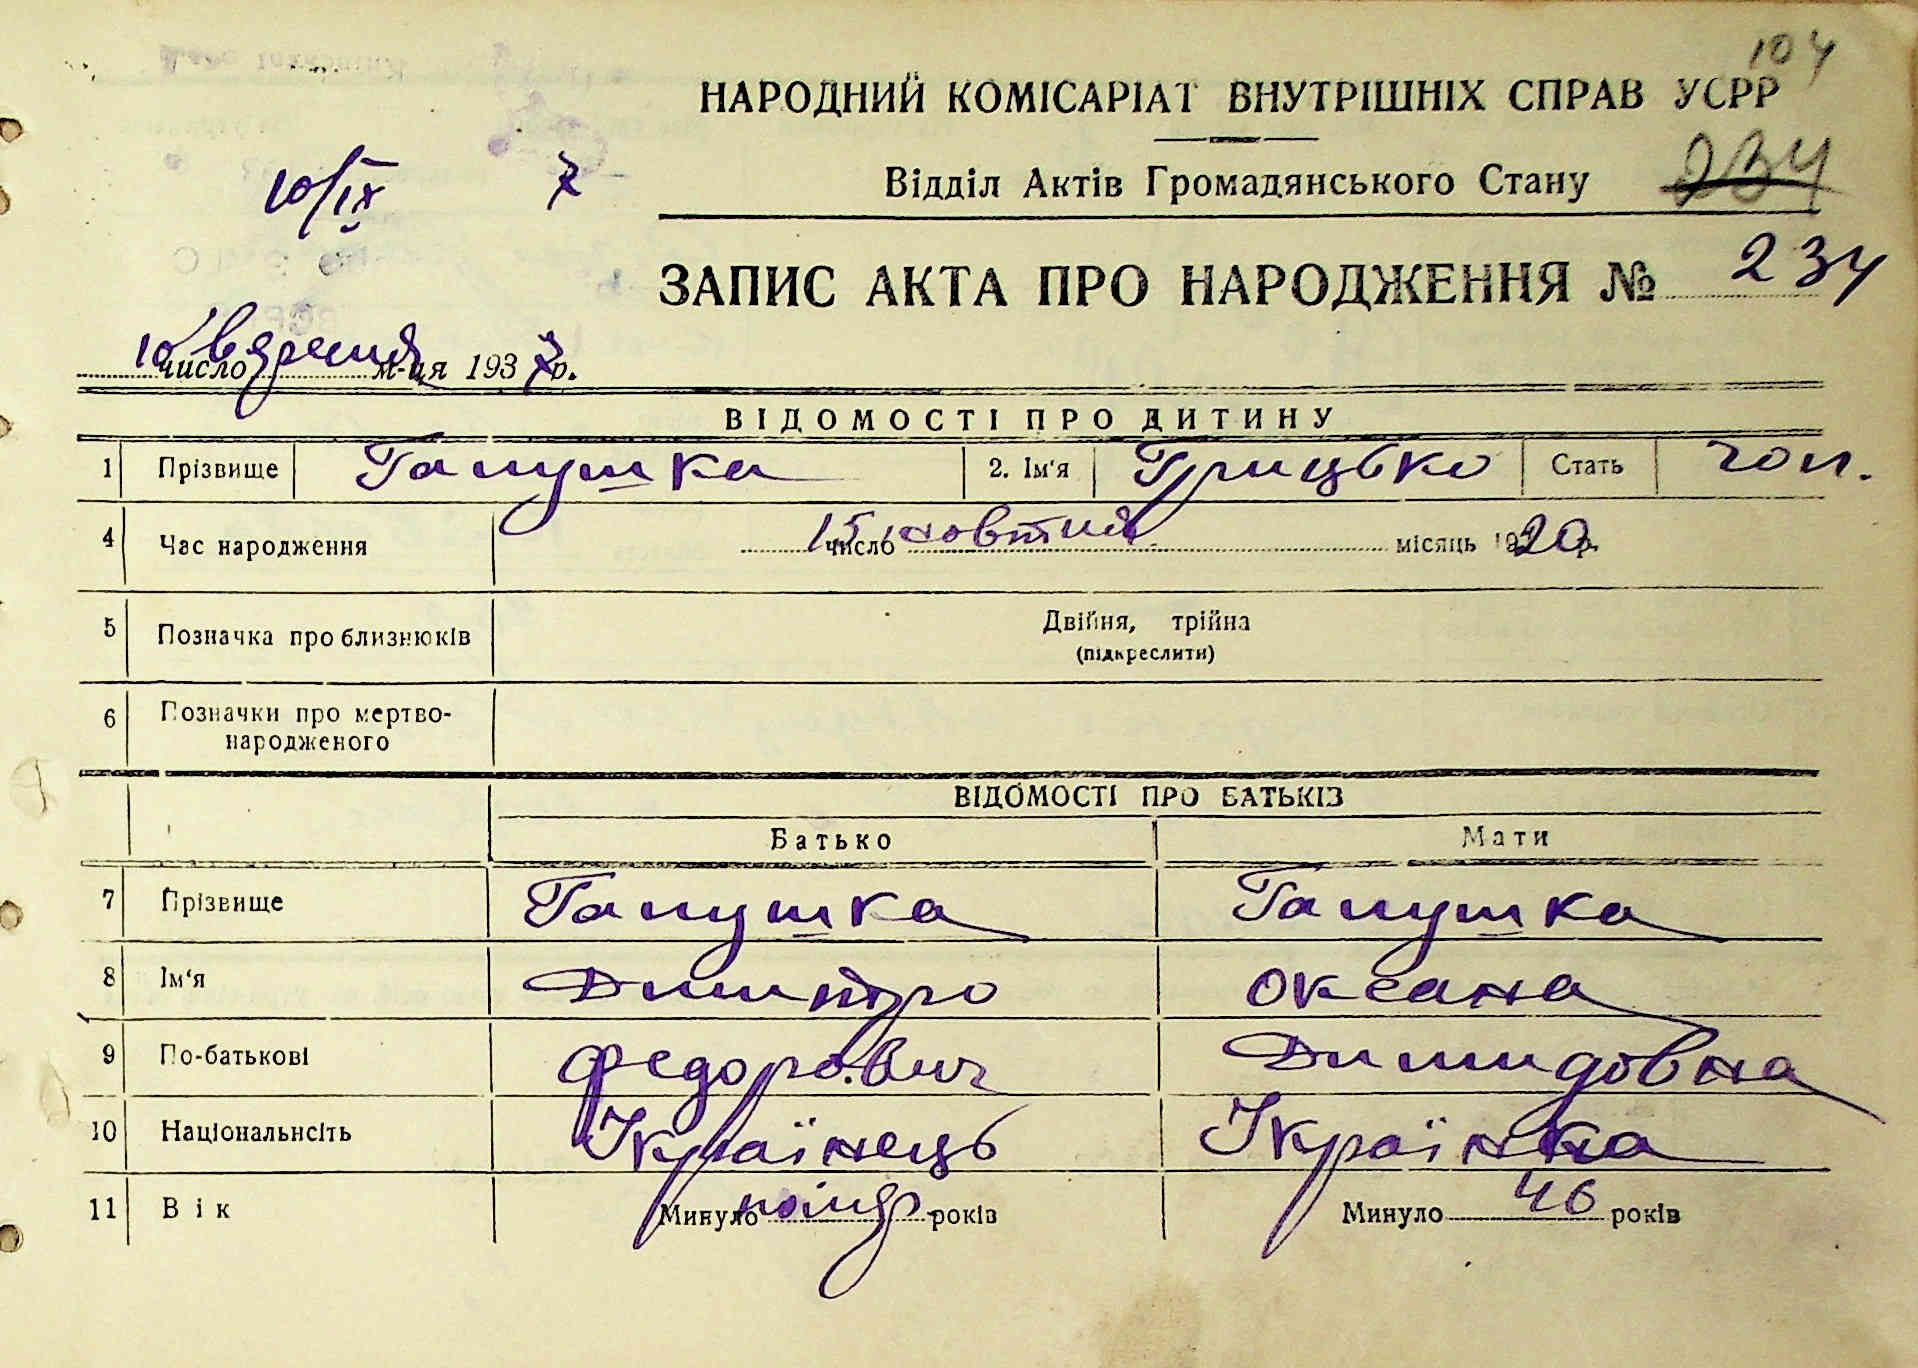 104
НАРОДНИЙ КОМІСАРІАТ ВНУТРІШНІХ СПРАВ УСРР
10/IX 7
Відділ Актів Громадянського Стану 234
ЗАПИС АКТА ПРО НАРОДЖЕННЯ № 234
10 число вересня м-ця 1937 р.
ВІДОМОСТІ ПРО ДИТИНУ
1 Прізвище Галушка 2. Ім'я Грицько Стать чол.
4 Час народження 15 число жовтня місяць 1920 р.
5 Позначка про близнюків Двійня, трійна
(підкреслити)
6 Позначки про мертво-
народженого
ВІДОМОСТІ ПРО БАТЬКІВ
Батько Мати
7 Прізвище Галушка Галушка
8 Ім'я Дмитро Оксана
9 По-батькові Федорович Димидовна
10 Національнсіть Українець Українка
11 Вік Минуло помер років Минуло 46 років